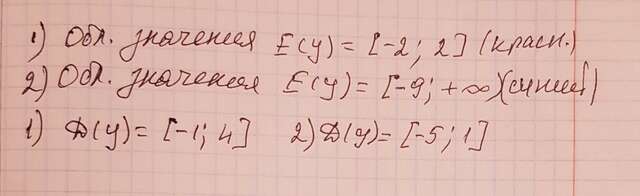 1) Обл. значения E(y) = [-2; 2] (красн.)
2) Обл. значения E(y) = [-9; +∞) (синий)
1) D(y) = [-1; 4] 2) D(y) = [-5; 1]